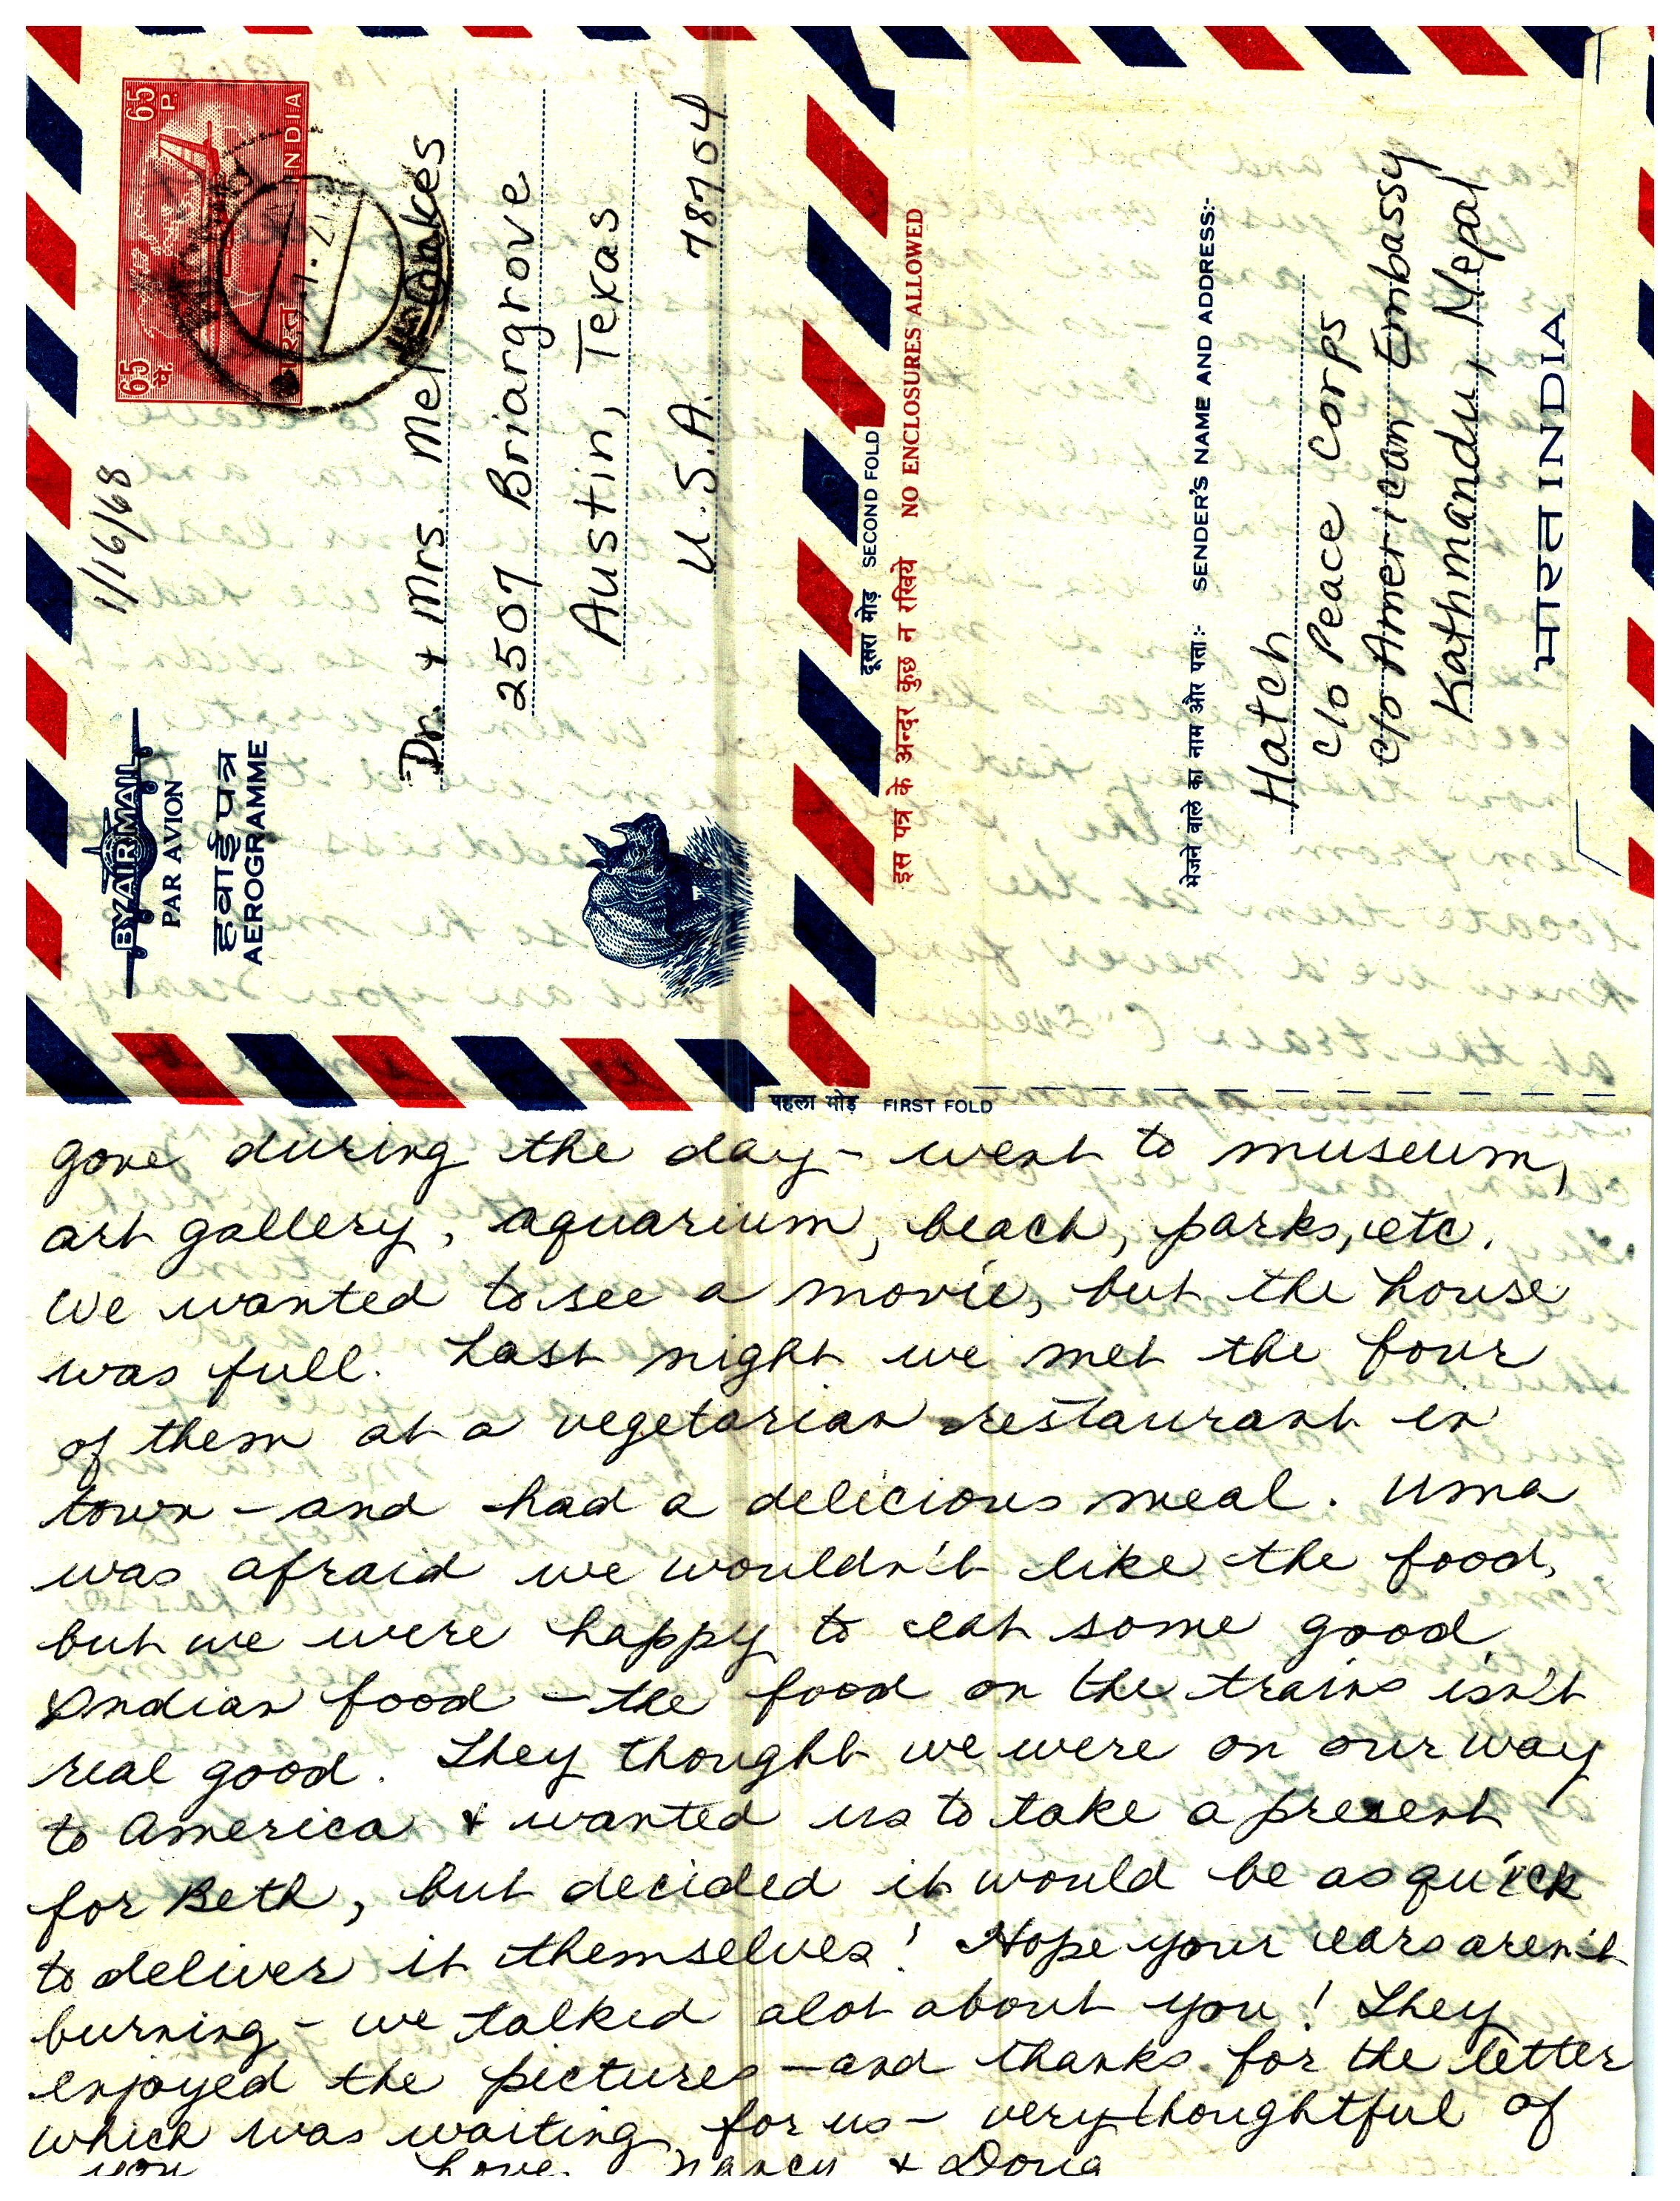 1/16/68
BY AIR MAIL
PAR AVION
हवाई पत्र
AEROGRAMME
65 P.
65 प.
भारत INDIA
Dr. & Mrs. Mel Oakes
2507 Briargrove
Austin, Texas
U.S.A. 78704
दूसरा मोड़ SECOND FOLD
इस पत्र के अन्दर कुछ न रखिये NO ENCLOSURES ALLOWED
भेजने वाले का नाम और पता:- SENDER'S NAME AND ADDRESS:-
Hatch
c/o Peace Corps
c/o American Embassy
Kathmandu, Nepal
भारत INDIA
पहला मोड़ FIRST FOLD
gone during the day - went to museum,
art gallery, aquarium, beach, parks, etc.
We wanted to see a movie, but the house
was full. Last night we met the four
of them at a vegetarian restaurant in
town - and had a delicious meal. Uma
was afraid we wouldn't like the food,
but we were happy to eat some good
Indian food - the food on the trains isn't
real good. They thought we were on our way
to America & wanted us to take a present
for Beth, but decided it would be as quick
to deliver it themselves! Hope your ears aren't
burning - we talked alot about you! They
enjoyed the pictures - and thanks for the letter
which was waiting for us - very thoughtful of
you Love, Nancy & Doug